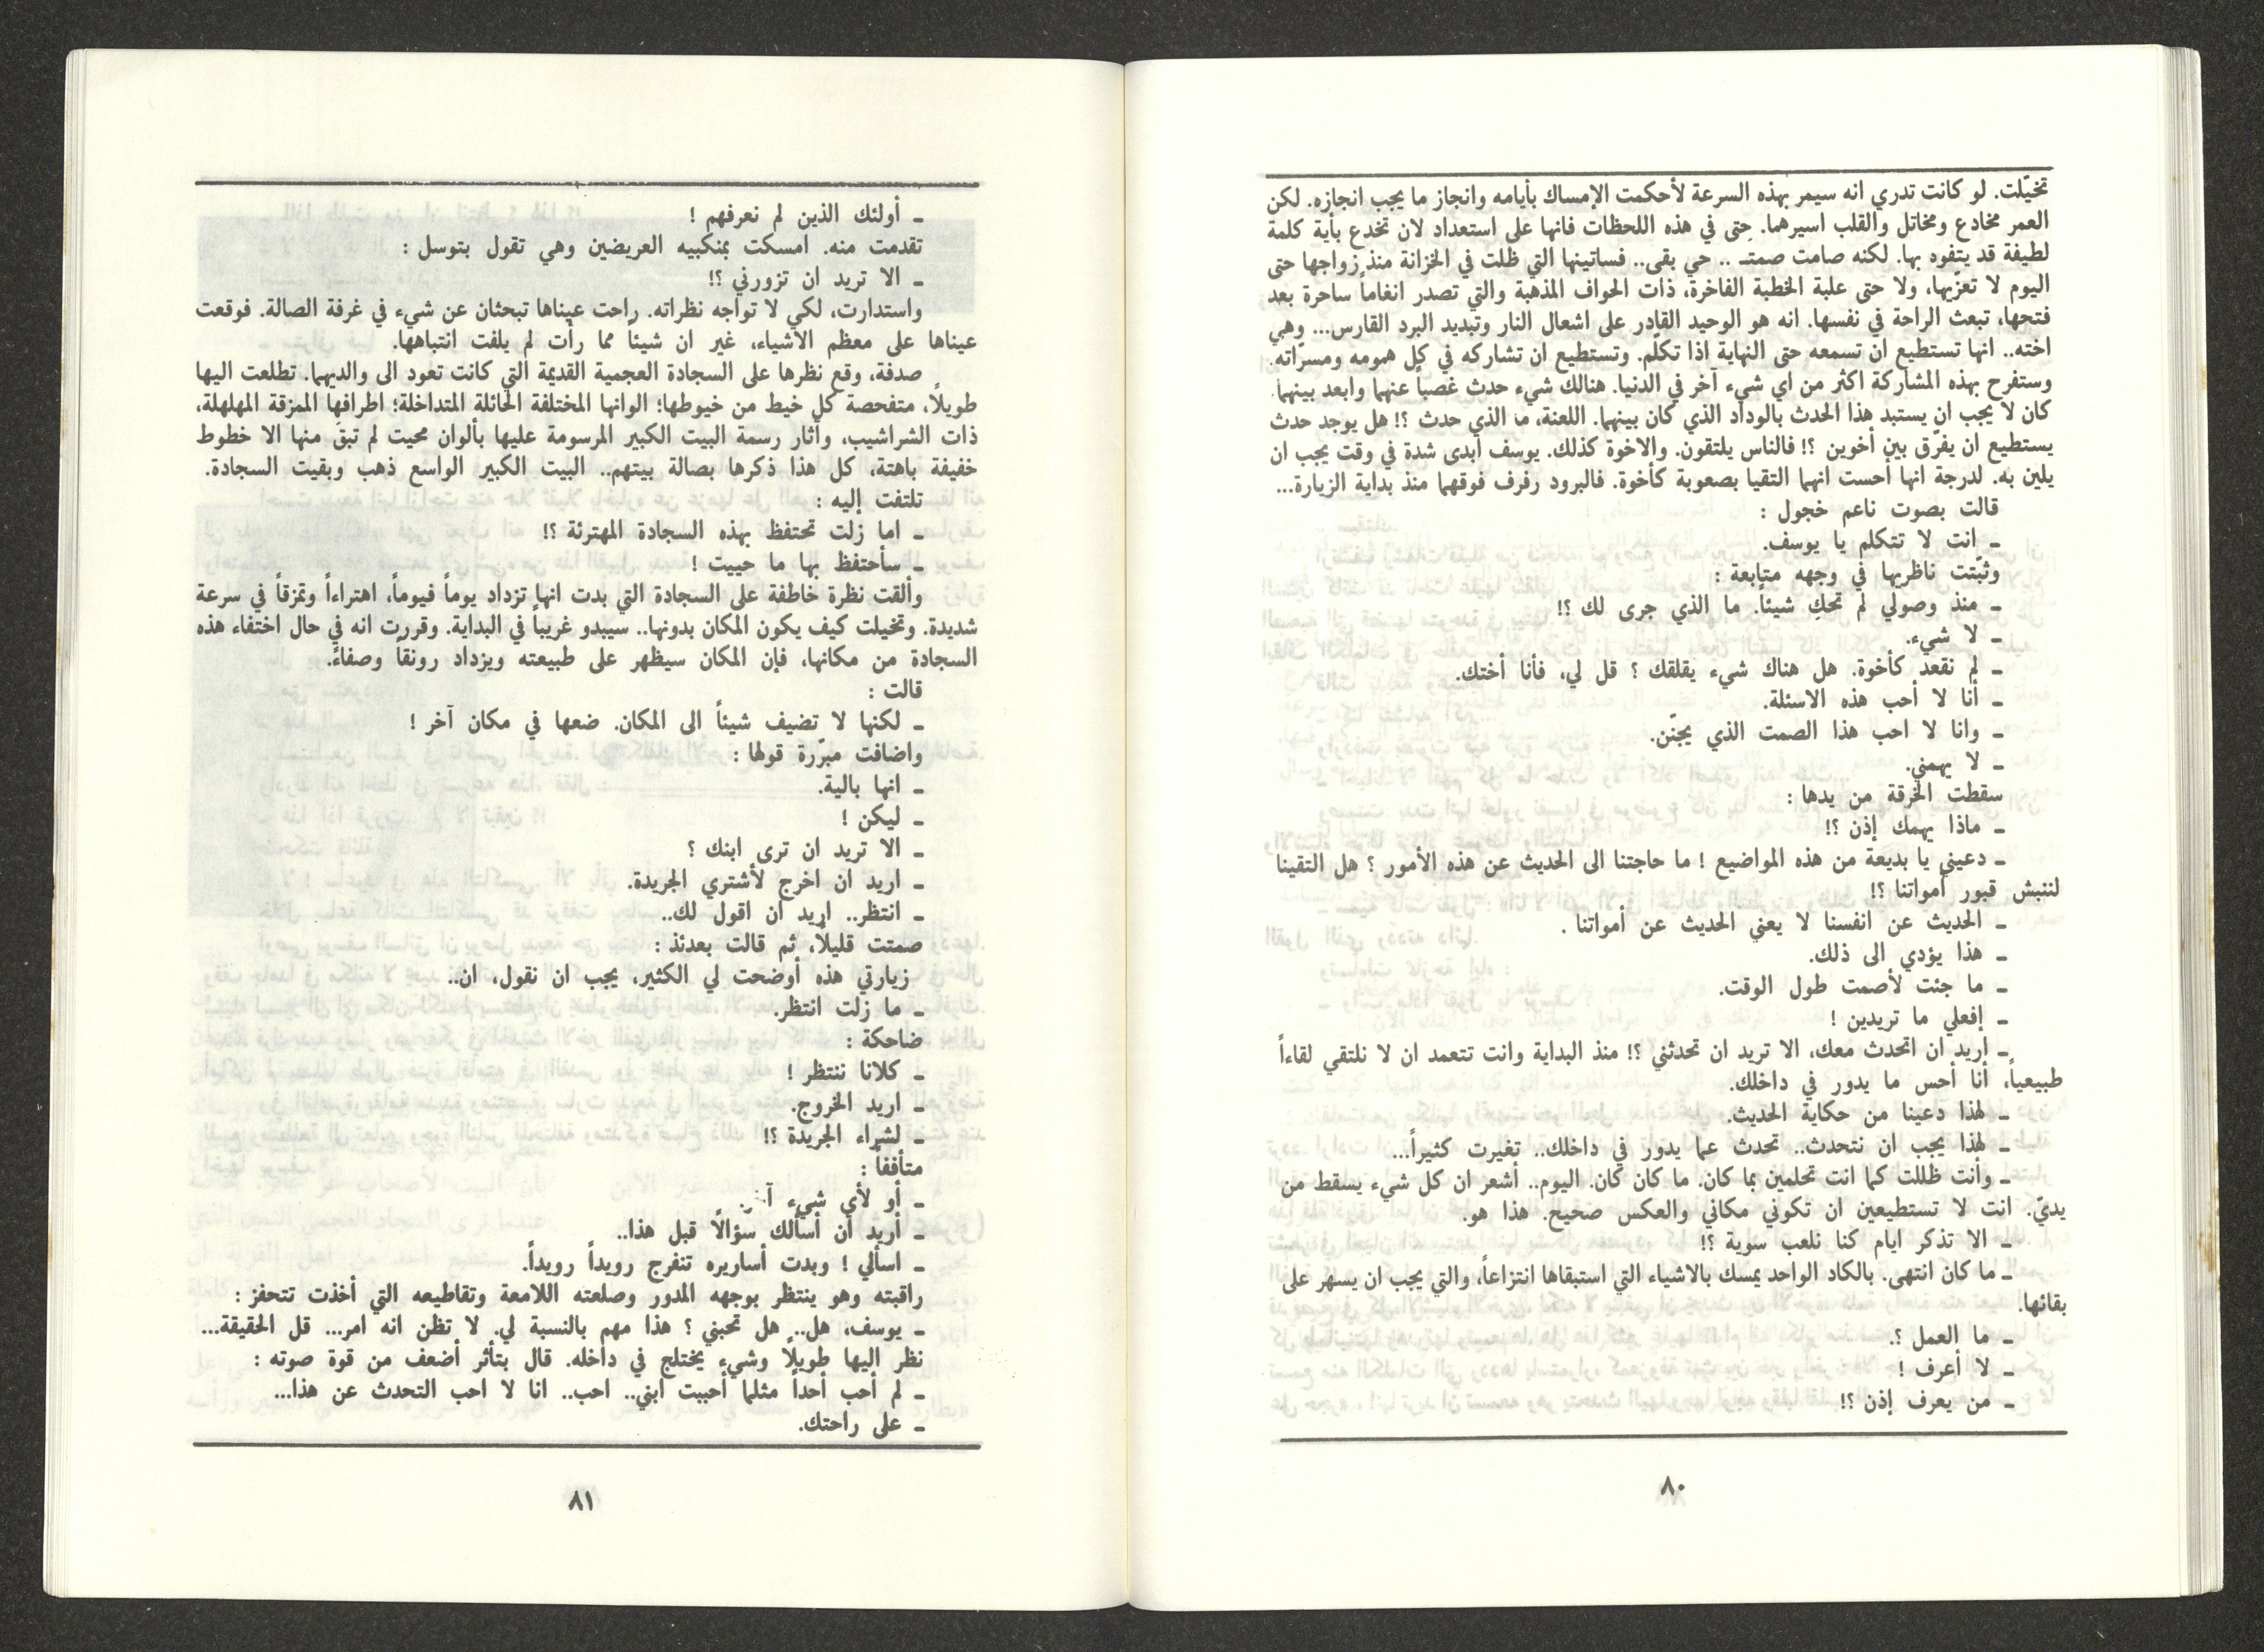 تخيّلت. لو كانت تدري انه سيمر بهذه السرعة لأحكمت الإمساك بأيامه وانجاز ما يجب انجازه. لكن
العمر مخادع ومخاتل والقلب اسيرهما. حتى في هذه اللحظات فانها على استعداد لان تخدع بأية كلمة
لطيفة قد يتفوه بها. لكنه صامت صمتـ .. حي بقى.. فساتينها التي ظلت في الخزانة منذ زواجها حتى
اليوم لا تعزّيها، ولا حتى علبة الخطبة الفاخرة، ذات الحواف المذهبة والتي تصدر انغاماً ساحرة بعد
فتحها، تبعث الراحة في نفسها. انه هو الوحيد القادر على اشعال النار وتبديد البرد القارس... وهي
اخته.. انها تستطيع ان تسمعه حتى النهاية اذا تكلّم. وتستطيع ان تشاركه في كل همومه ومسرّاته.
وستفرح بهذه المشاركة اكثر من اي شيء آخر في الدنيا. هنالك شيء حدث غصباً عنهما وابعد بينهما.
كان لا يجب ان يستبد هذا الحدث بالوداد الذي كان بينهما. اللعنة، ما الذي حدث ؟! هل يوجد حدث
يستطيع ان يفرّق بين أخوين ؟! فالناس يلتقون. والاخوة كذلك. يوسف أبدى شدة في وقت يجب ان
يلين به. لدرجة انها أحست انهما التقيا بصعوبة كأخوة. فالبرود رفرف فوقهما منذ بداية الزيارة...
قالت بصوت ناعم خجول :
ـ انت لا تتكلم يا يوسف.
وثبّتت ناظريها في وجهه متابعة :
ـ منذ وصولي لم تحكِ شيئاً. ما الذي جرى لك ؟!
ـ لا شيء.
ـ لم نقعد كأخوة. هل هناك شيء يقلقك ؟ قل لي، فأنا أختك.
ـ أنا لا أحب هذه الاسئلة.
ـ وانا لا احب هذا الصمت الذي يجنّن.
ـ لا يهمني.
سقطت الخرقة من يدها :
ـ ماذا يهمك إذن ؟!
ـ دعيني يا بديعة من هذه المواضيع ! ما حاجتنا الى الحديث عن هذه الأمور ؟ هل التقينا
لننبش قبور أمواتنا ؟!
ـ الحديث عن انفسنا لا يعني الحديث عن أمواتنا .
ـ هذا يؤدي الى ذلك.
ـ ما جئت لأصمت طول الوقت.
ـ إفعلي ما تريدين !
ـ اريد ان اتحدث معك، الا تريد ان تحدثني ؟! منذ البداية وانت تتعمد ان لا نلتقي لقاءاً
طبيعياً، أنا أحس ما يدور في داخلك.
ـ لهذا دعينا من حكاية الحديث.
ـ لهذا يجب ان نتحدث.. تحدث عما يدور في داخلك.. تغيرت كثيراً...
ـ وأنت ظللت كما انت تحلمين بما كان. ما كان كان. اليوم.. أشعر ان كل شيء يسقط من
يديّ. انت لا تستطيعين ان تكوني مكاني والعكس صحيح. هذا هو.
ـ الا تذكر ايام كنا نلعب سوية ؟!
ـ ما كان انتهى. بالكاد الواحد يمسك بالاشياء التي استبقاها انتزاعاً، والتي يجب ان يسهر على
بقائها.
ـ ما العمل ؟.
ـ لا أعرف !
ـ من يعرف إذن ؟!
٨٠
ـ أولئك الذين لم نعرفهم !
تقدمت منه. امسكت بمنكبيه العريضين وهي تقول بتوسل :
ـ الا تريد ان تزورني ؟!
واستدارت، لكي لا تواجه نظراته. راحت عيناها تبحثان عن شيء في غرفة الصالة. فوقعت
عيناها على معظم الاشياء، غير ان شيئاً مما رأت لم يلفت انتباهها.
صدفة، وقع نظرها على السجادة العجمية القديمة التي كانت تعود الى والديهما. تطلعت اليها
طويلاً، متفحصة كل خيط من خيوطها؛ الوانها المختلفة الحائلة المتداخلة؛ اطرافها الممزقة المهلهلة،
ذات الشراشيب، وآثار رسمة البيت الكبير المرسومة عليها بألوان محيت لم تبق منها الا خطوط
خفيفة باهتة، كل هذا ذكرها بصالة بيتهم.. البيت الكبير الواسع ذهب وبقيت السجادة.
تلتفت إليه :
ـ اما زلت تحتفظ بهذه السجادة المهترئة ؟!
ـ سأحتفظ بها ما حييت !
وألقت نظرة خاطفة على السجادة التي بدت انها تزداد يوماً فيوماً، اهتراءاً وتمزقاً في سرعة
شديدة. وتخيلت كيف يكون المكان بدونها.. سيبدو غريباً في البداية. وقررت انه في حال اختفاء هذه
السجادة من مكانها، فإن المكان سيظهر على طبيعته ويزداد رونقاً وصفاءً.
قالت :
ـ لكنها لا تضيف شيئاً الى المكان. ضعها في مكان آخر !
واضافت مبرّرة قولها :
ـ انها بالية.
ـ ليكن !
ـ الا تريد ان ترى ابنك ؟
ـ اريد ان اخرج لأشتري الجريدة.
ـ انتظر.. اريد ان اقول لك..
صمتت قليلاً، ثم قالت بعدئذ :
زيارتي هذه أوضحت لي الكثير، يجب ان نقول، ان..
ـ ما زلت انتظر.
ضاحكة :
ـ كلانا ننتظر !
ـ اريد الخروج.
ـ لشراء الجريدة ؟!
متأففاً :
ـ أو لأي شيء
ـ أريد ان أسألك سؤالاً قبل هذا..
ـ اسألي ! وبدت أساريره تنفرج رويداً رويداً.
راقبته وهو ينتظر بوجهه المدور وصلعته اللامعة وتقاطيعه التي أخذت تتحفز :
ـ يوسف، هل.. هل تحبني ؟ هذا مهم بالنسبة لي. لا تظن انه امر... قل الحقيقة...
نظر اليها طويلاً وشيء يختلج في داخله. قال بتأثر أضعف من قوة صوته :
ـ لم أحب أحداً مثلما أحببت ابني.. احب.. انا لا احب التحدث عن هذا...
ـ على راحتك.
٨١